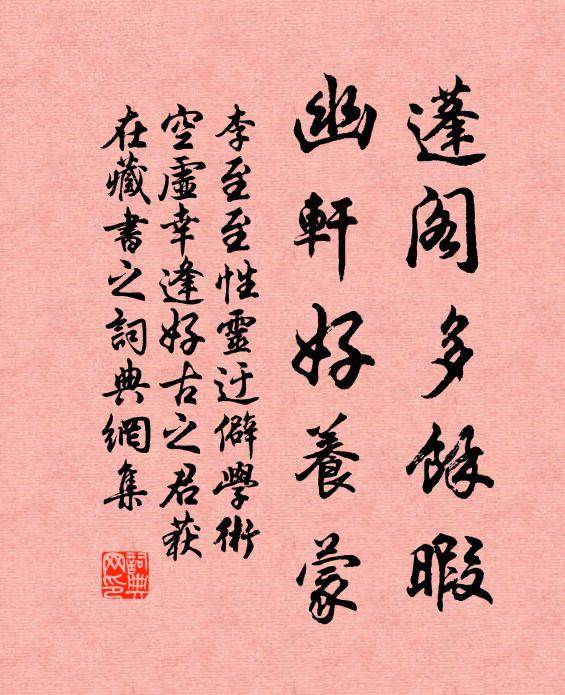 蓬阁多餘暇
幽軒好養蒙
李至至性靈迂僻學術
空虛幸逢好古之君获
在藏書之詞典網集
詞典网印